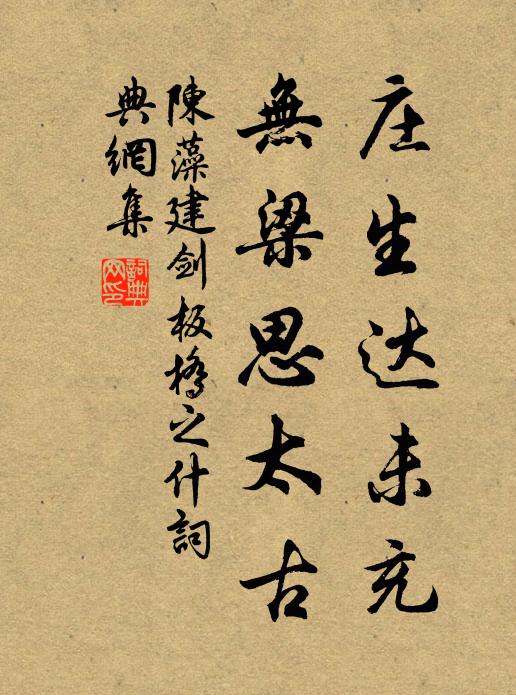 庄生达未充
無梁思太古
陳藻建剑板橋之什詞
典網集
詞典
网印